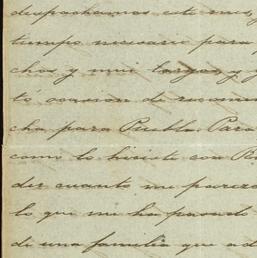 despachamos este mes,
tiempo necesario para
chos y mui largos, y
tó ocasion de recomen
cha para Puebla. Para
como lo hiciste con
der cuanto me parezca
lo que me ha pasado
de una familia que